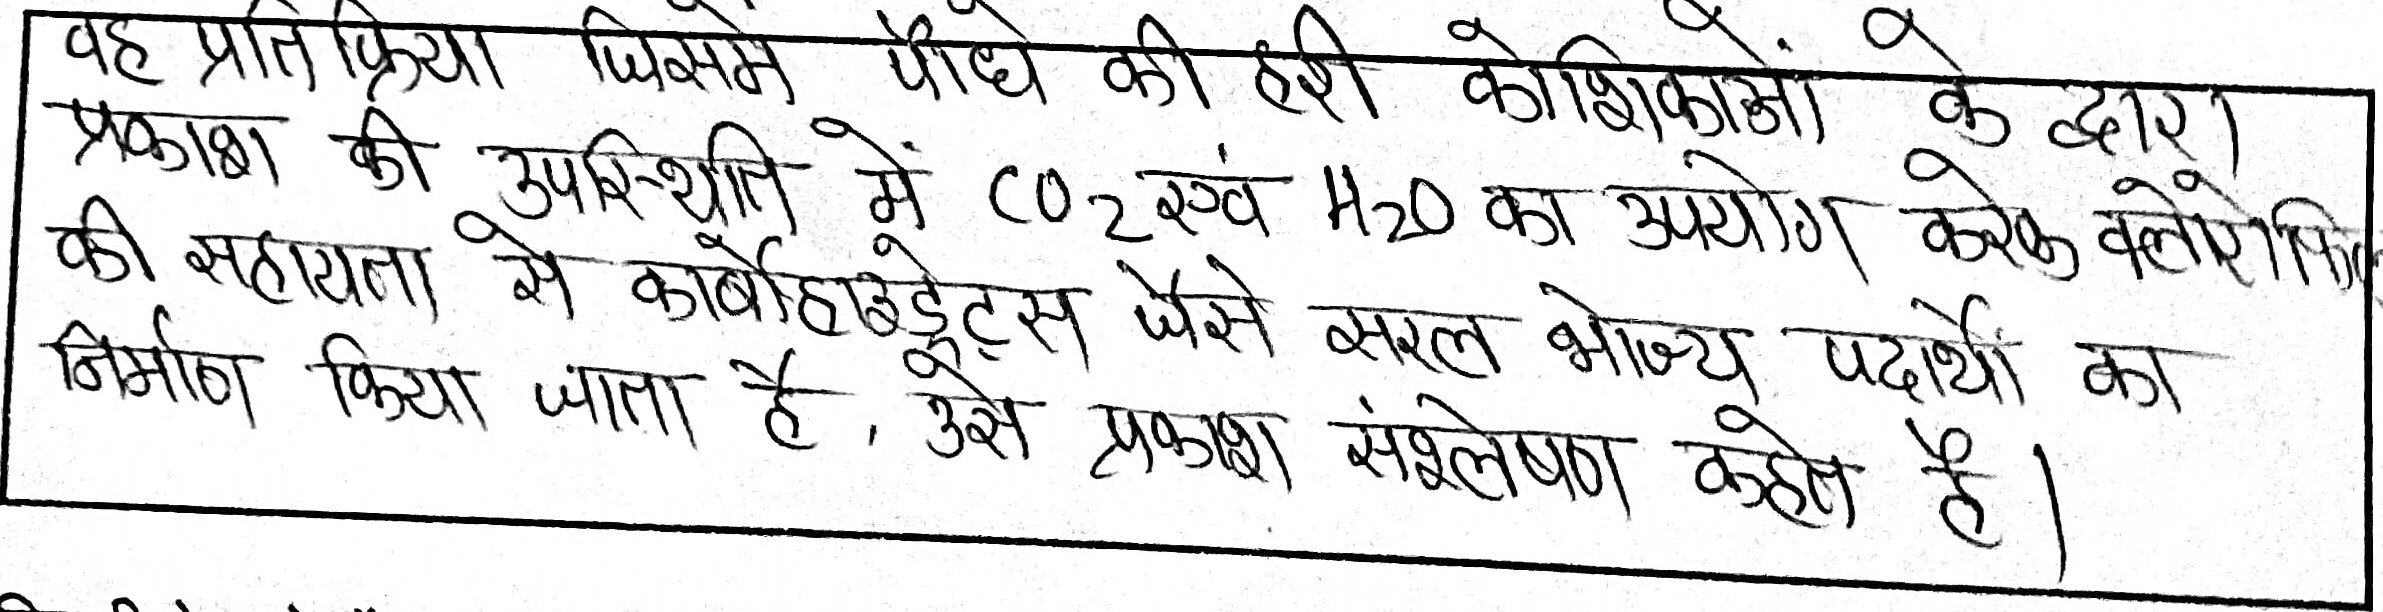 वह प्रतिक्रिया जिसमे पौधे की हरी कोशिकाओं के द्वारा
प्रकाश की उपस्थिति में CO2 एवं H2O का उपयोग करके क्लोरोफिल
की सहायता से कार्बोहाइड्रेट्स जैसे सरल भोज्य पदार्थो का
निर्माण किया जाता है, उसे प्रकाश संश्लेषण कहते है।